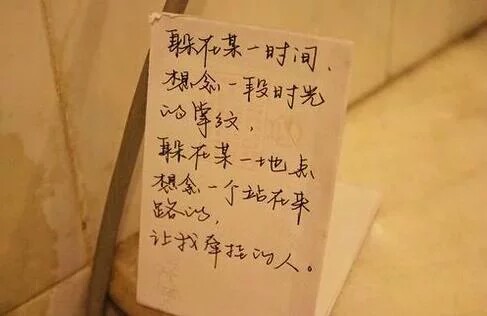 躲在某一时间，
想念一段时光
的掌纹，
躲在某一地点
想念一个站在来
路的，
让我牵挂的人。